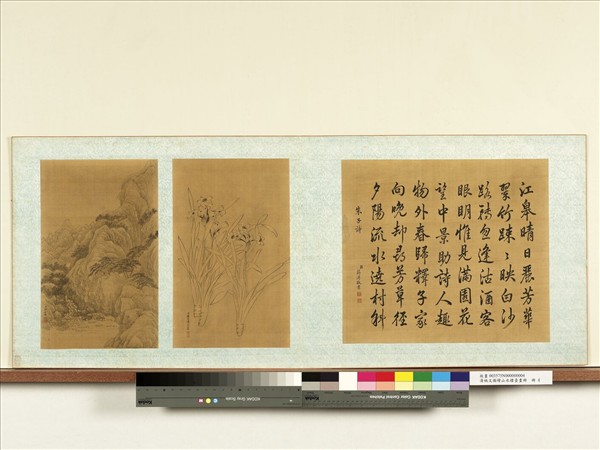 江皋晴日麗芳華
翠竹疎〻映白沙
路轉忽逢沽酒客
眼明惟見滿園花
望中景助詩人趣
物外春歸釋子家
向晚却尋芳草徑
夕陽流水遶村斜
KODAK Gray Scale
Kodak
KODAK Color Control Patches